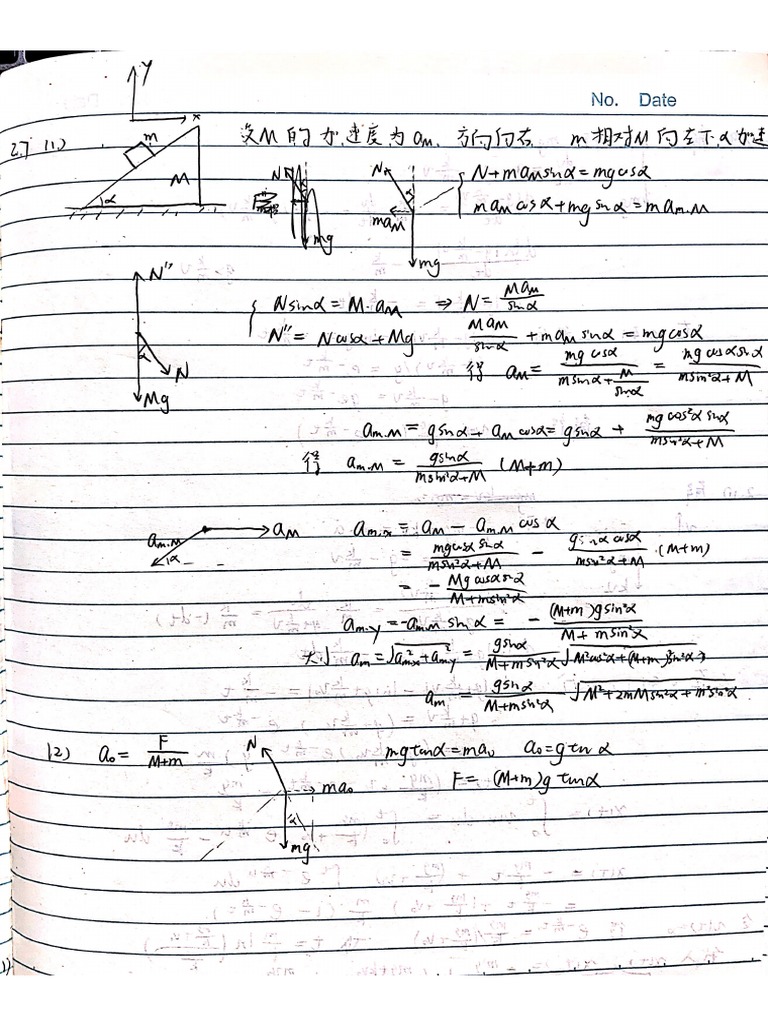 No. Date
y
x
2.7 (1)
m
M
α
设M的加速度为a_M, 方向向右, m相对M向左下α加速
N
mg
N
α
ma_M
mg
{ N+ma_M sinα=mgcosα
ma_M cosα+mg sinα=ma_{m.M}
N''
α
N
Mg
{ Nsinα=M·a_M ⇒ N=\frac{Ma_M}{sinα}
N''= Ncosα+Mg \frac{Ma_M}{sinα}+ma_M sinα=mgcosα
得 a_M=\frac{mgcosα}{msinα+\frac{M}{sinα}}=\frac{mgcosαsinα}{msin²α+M}
a_{m.M}=gsinα+a_M cosα=gsinα+\frac{mgcos²αsinα}{msin²α+M}
得 a_{m.M}=\frac{gsinα}{msin²α+M}(M+m)
a_{m.M}
a_M
α
a_{m.x}=a_M-a_{m.M}cosα
=\frac{mgcosαsinα}{msin²α+M}-\frac{gsinαcosα}{msin²α+M}·(M+m)
=-\frac{Mgcosαsinα}{M+msin²α}
a_{m.y}=-a_{m.M}sinα=-\frac{(M+m)gsin²α}{M+msin²α}
大小 a_m=\sqrt{a_{mx}²+a_{my}²}=\frac{gsinα}{M+msin²α}\sqrt{M²cos²α+(M+m)²sin²α}
a_m=\frac{gsinα}{M+msin²α}\sqrt{M²+2mMsin²α+m²sin²α}
(2) a₀=\frac{F}{M+m}
N
ma₀
α
mg
mgtanα=ma₀ a₀=gtanα
F=(M+m)gtanα